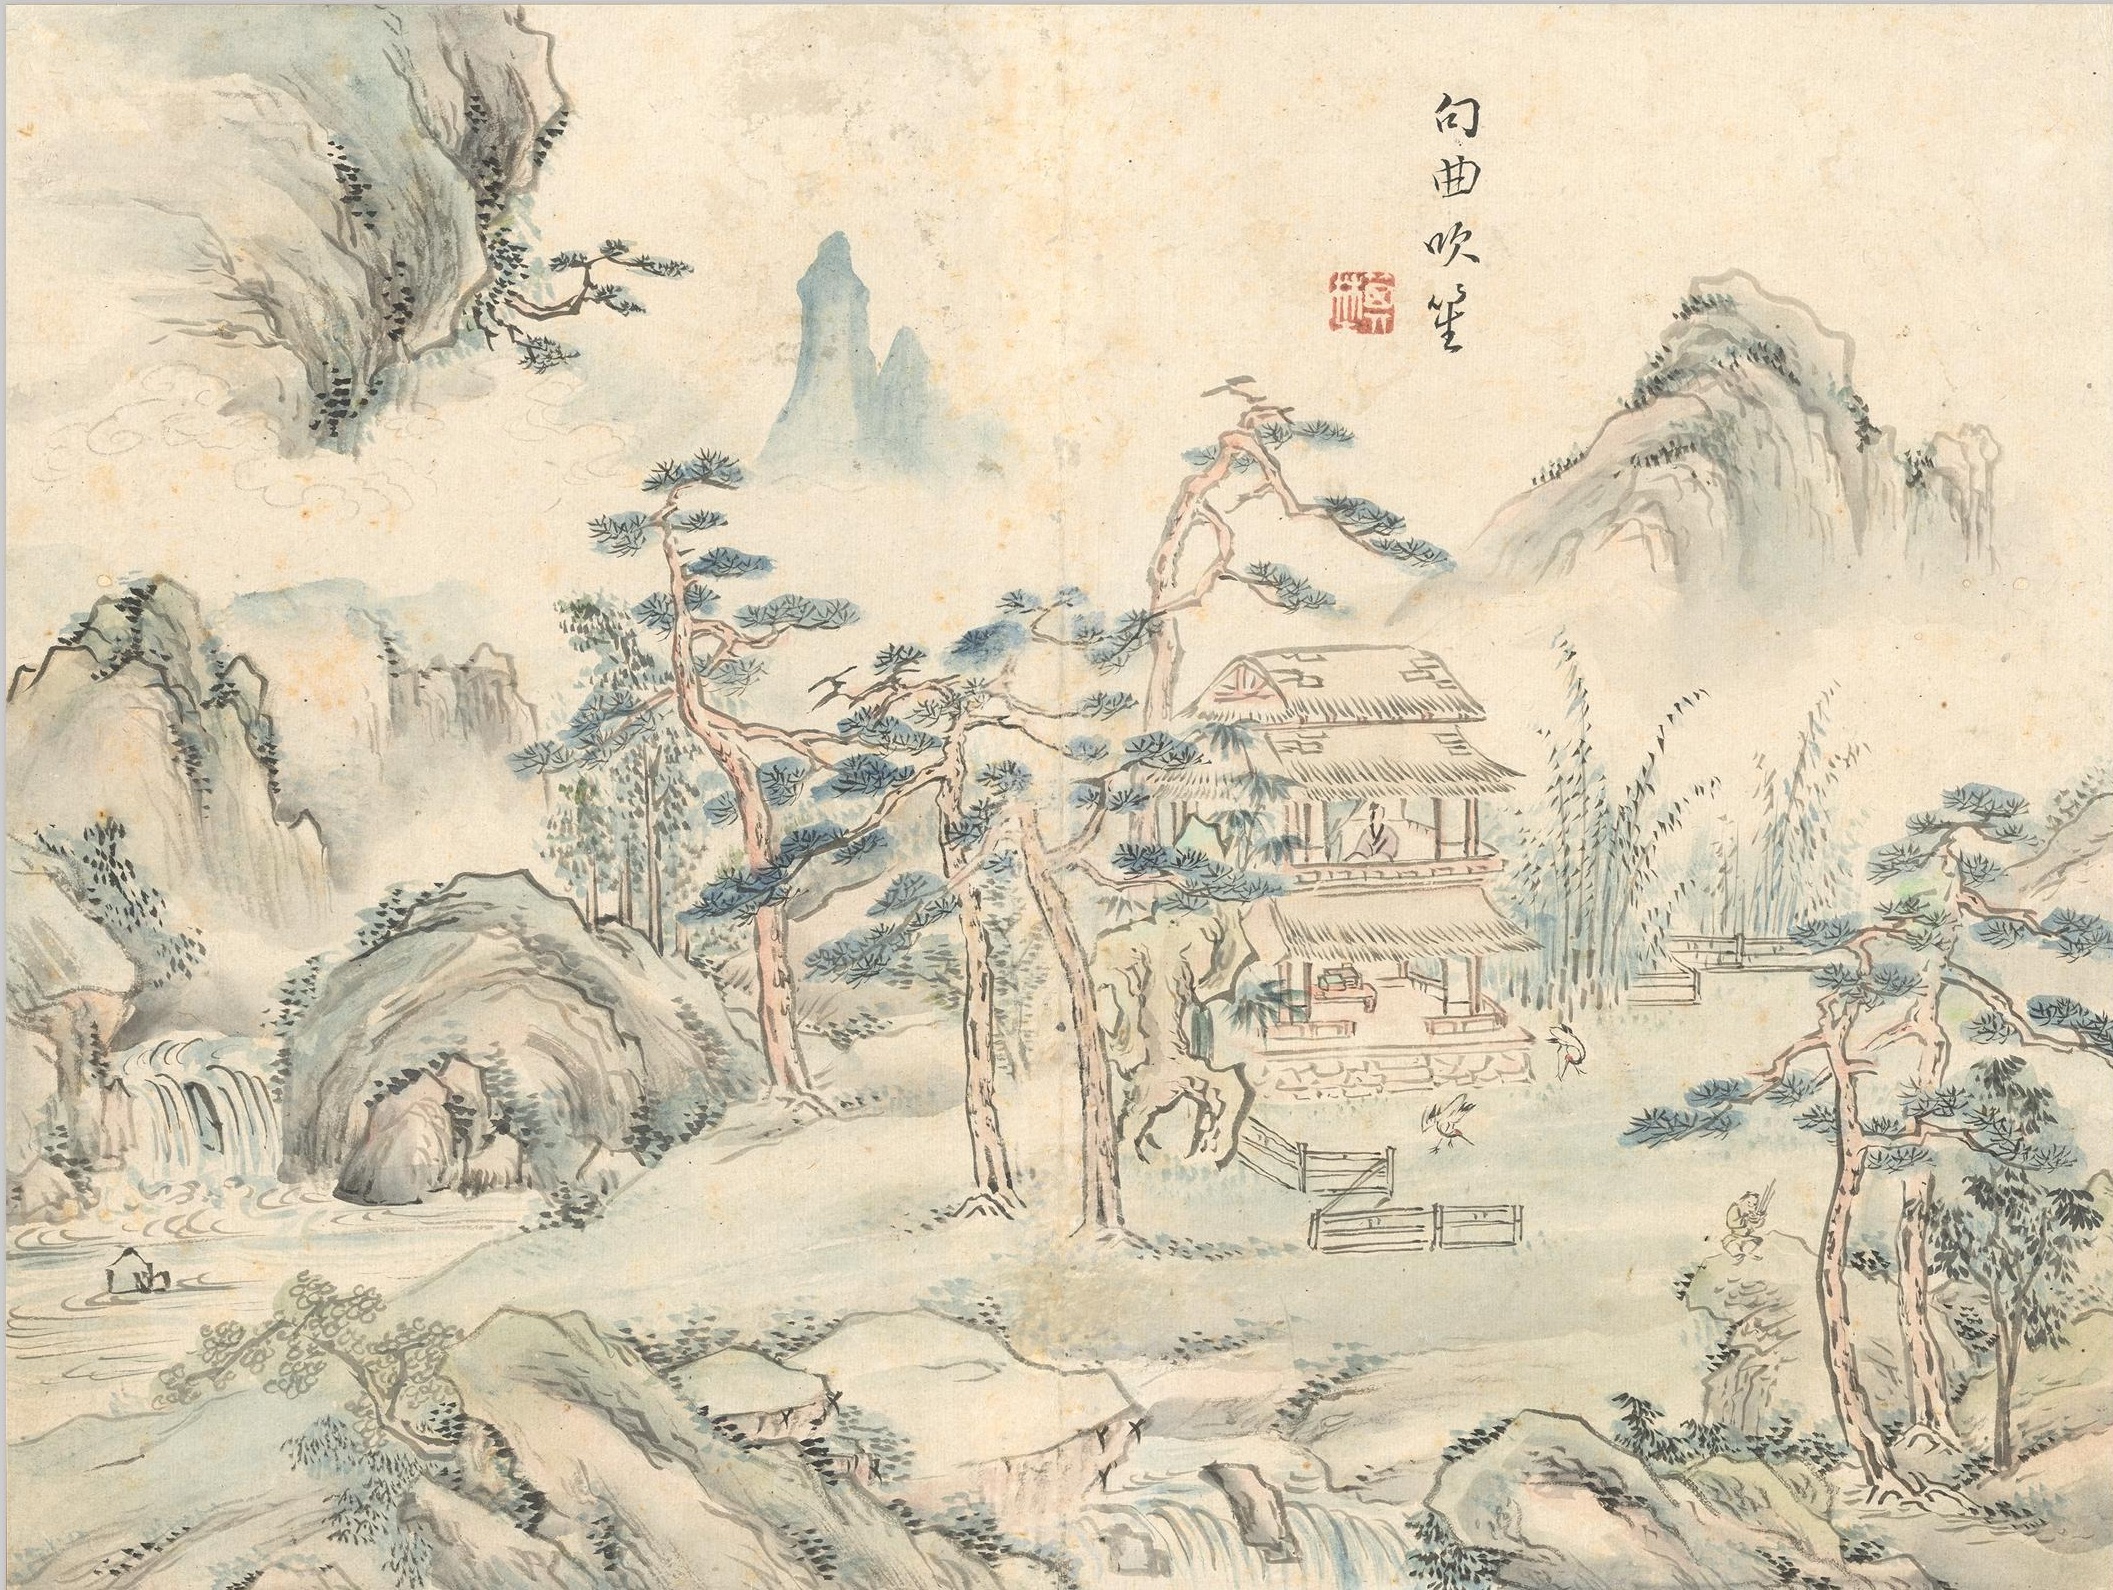 句曲吹笙